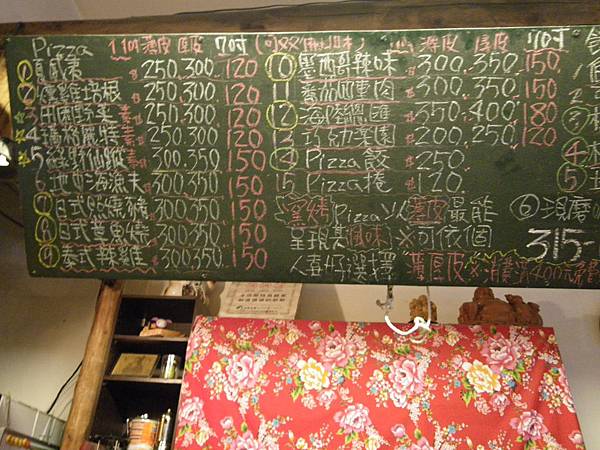 Pizza 11吋 薄皮 厚皮 7吋 薄皮 厚皮 7吋
① 夏威夷 $250.300. 120
② 煙燻培根 250.300 120
3 田園野菜 素 250.300 120
4 瑪格麗特 素 250.300 120
5 綠野仙蹤 300.350 150
6 地中海漁夫 300.350 150
⑦ 日式照燒豬 300.350 150
⑧ 日式章魚燒 300.350 150
⑨ 泰式辣雞 300.350. 150
⑩ 墨西哥辣味 300.350. 150
11 番茄燻肉 300.350. 150
12 海陸總匯 350.400. 180
13 巧幼菓園 200.250. 120
⑭ Pizza餃 250.
15 Pizza捲 120.
窯烤Pizza以薄皮最能
呈現其風味※可依個
人喜好選擇"薄厚皮"※消費滿400元免費
③
④
⑤
⑥ 現磨
315-